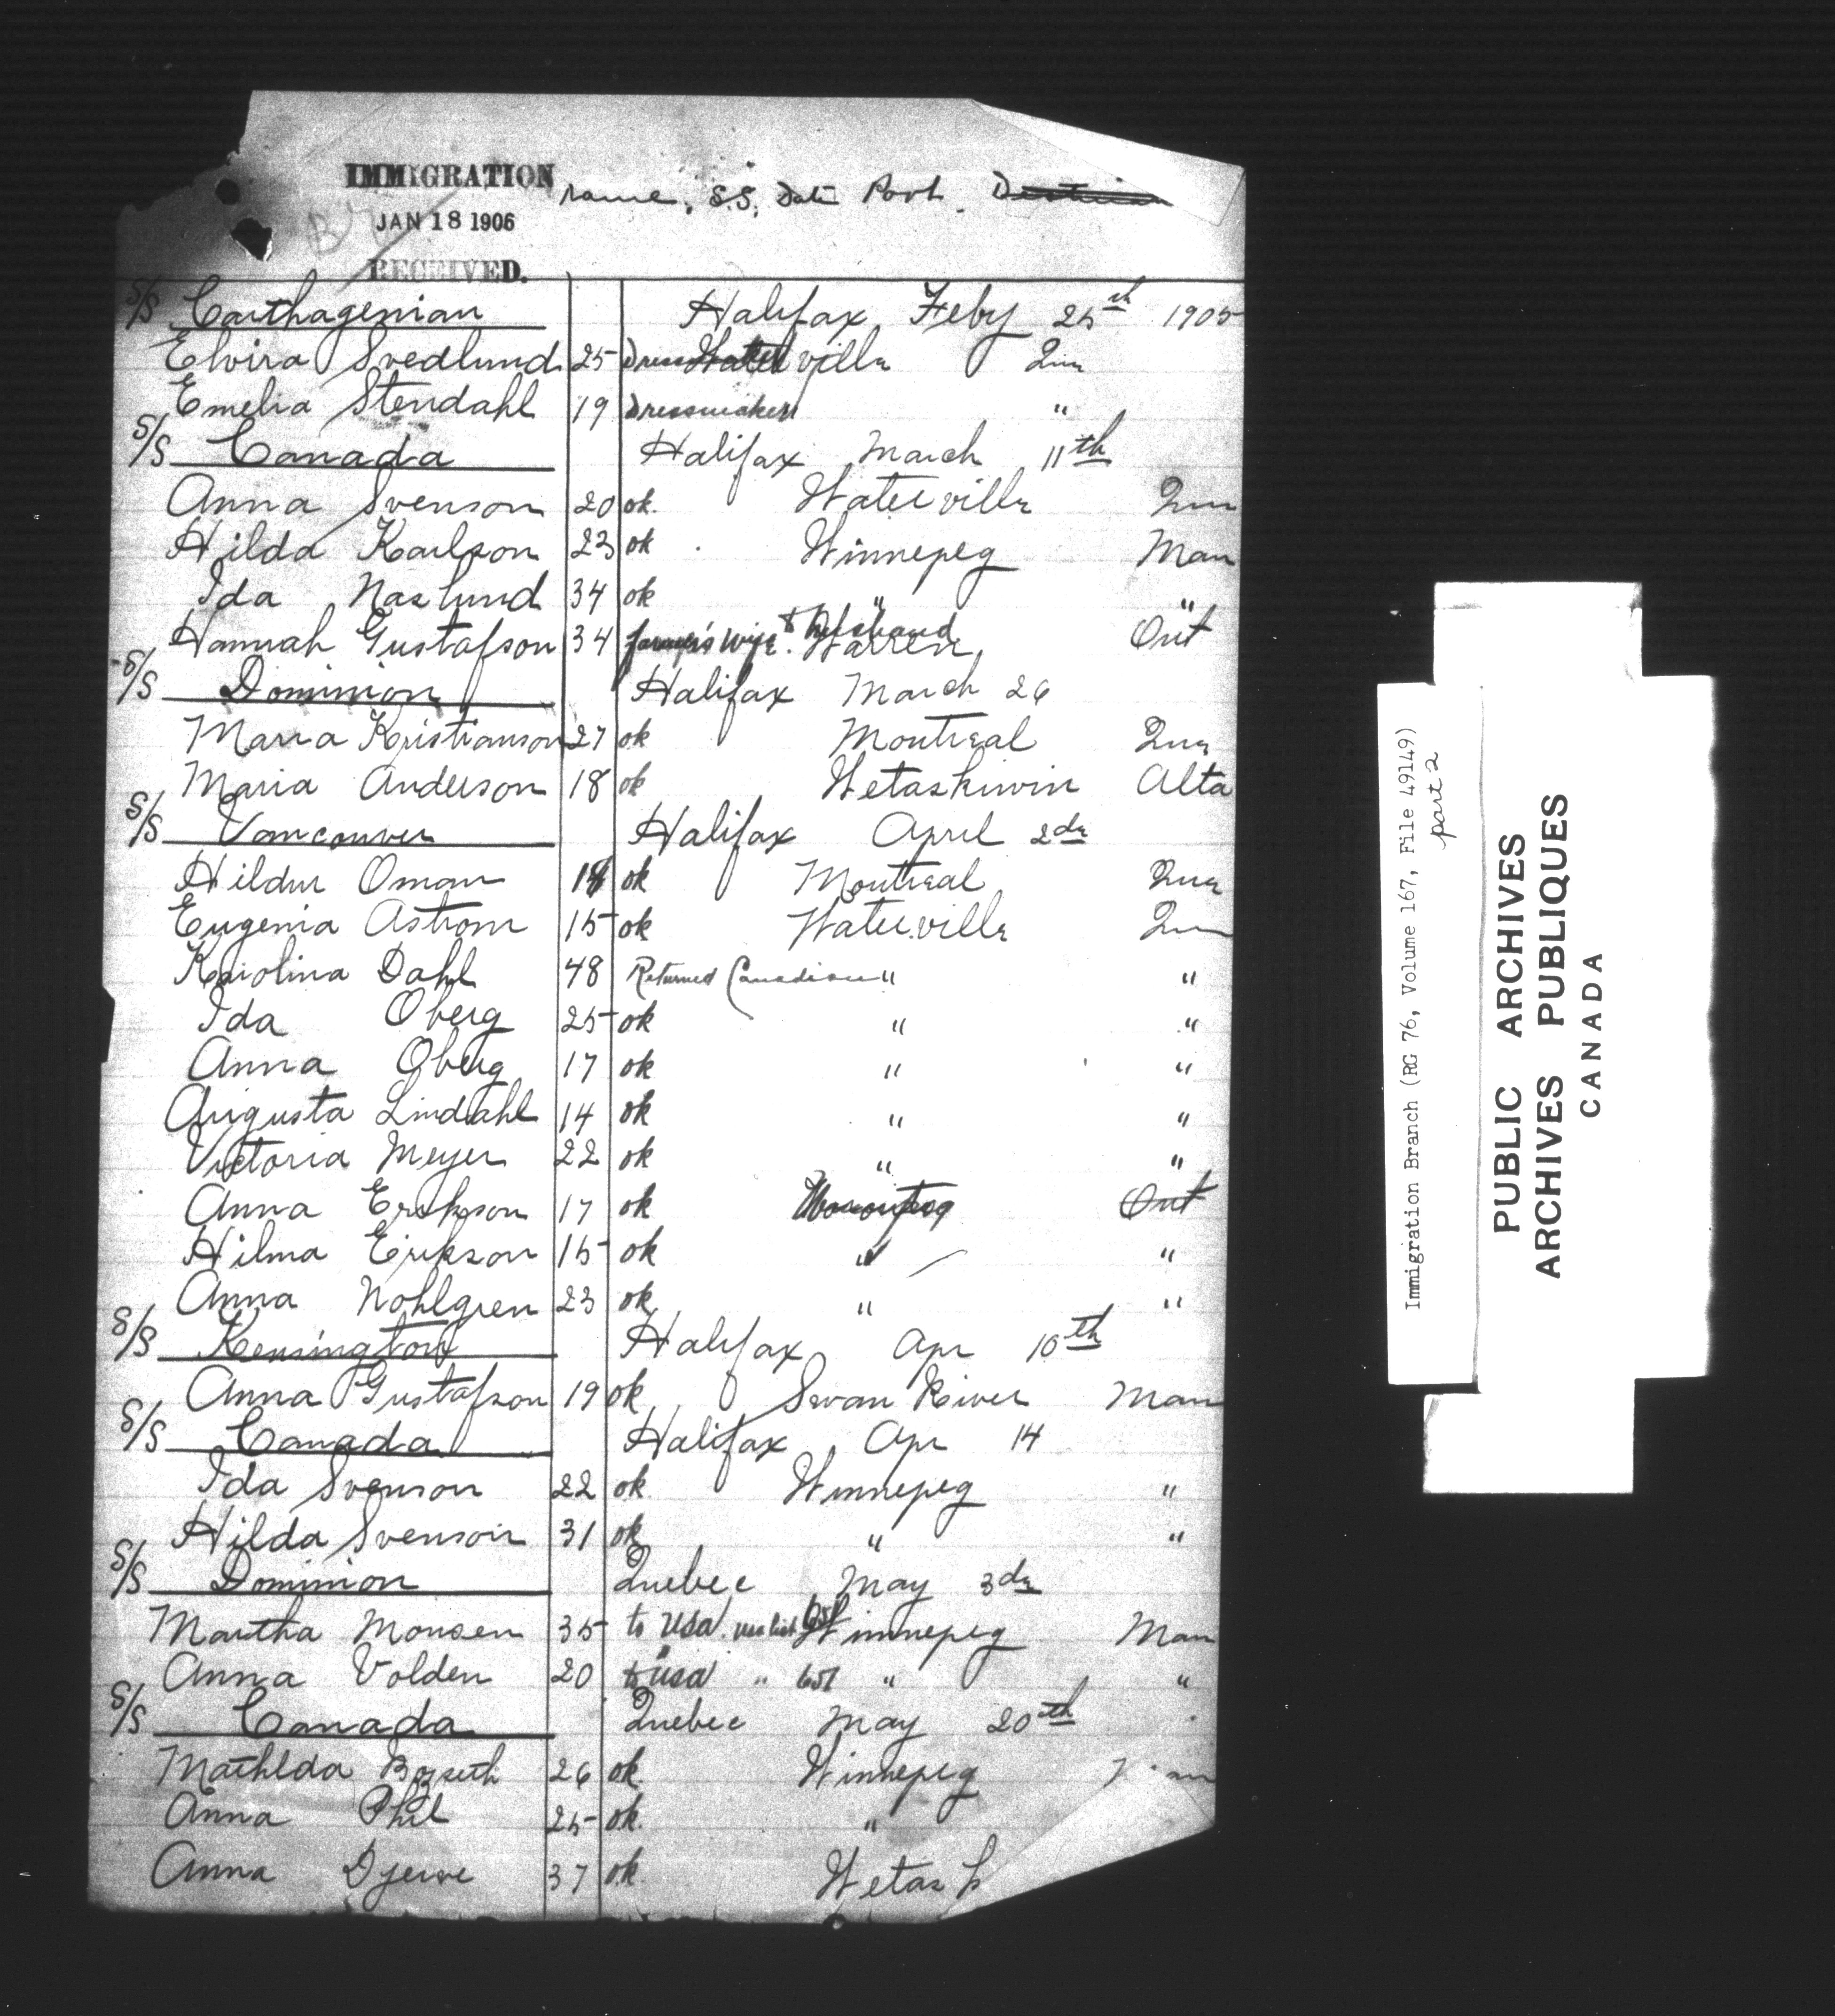 IMMIGRATION
JAN 18 1906
RECEIVED.
Name, S.S. Date Port.
S/S Carthagenian Halifax Feby 25th 1905
Elvira Svedlund 25 Waterville Que
Emelia Stendahl 19 Dressmaker "
S/S Canada Halifax March 11th
Anna Svenson 20 ok. Waterville Que
Hilda Karlson 23 ok Winnepeg Man
Ida Naslund 34 ok " "
Hannah Gustafson 34 farmer's wife. & husband Warren Ont
S/S Dominion Halifax March 26
Maria Kristianson 27 ok Montreal Que
Maria Anderson 18 ok Wetaskiwin Alta
S/S Vancouver Halifax April 2de
Hildur Oman 18 ok Montreal Que
Eugenia Astrom 15 ok Waterville Que
Karolina Dahl 48 Returned Canadian " "
Ida Oberg 25 ok " "
Anna Oberg 17 ok " "
Augusta Lindahl 14 ok " "
Victoria Meyer 22 ok " "
Anna Erikson 17 ok Ont
Hilma Erikson 15 ok " "
Anna Nohlgren 23 ok " "
S/S Kensington Halifax Apr 10th
Anna Gustafson 19 ok Swan River Man
S/S Canada Halifax Apr 14
Ida Svenson 22 ok. Winnepeg "
Hilda Svenson 31 ok " "
S/S Dominion Quebec May 3de
Martha Monsen 35 to USA. Winnepeg Man
Anna Volden 20 to USA " " "
S/S Canada Quebec May 20th
Mathlda 26 ok. Winnepeg
Anna Phil 25 ok. "
Anna Djerve 37 ok Wetask
Immigration Branch (RG 76, Volume 167, File 49149)
part 2
PUBLIC ARCHIVES
ARCHIVES PUBLIQUES
CANADA